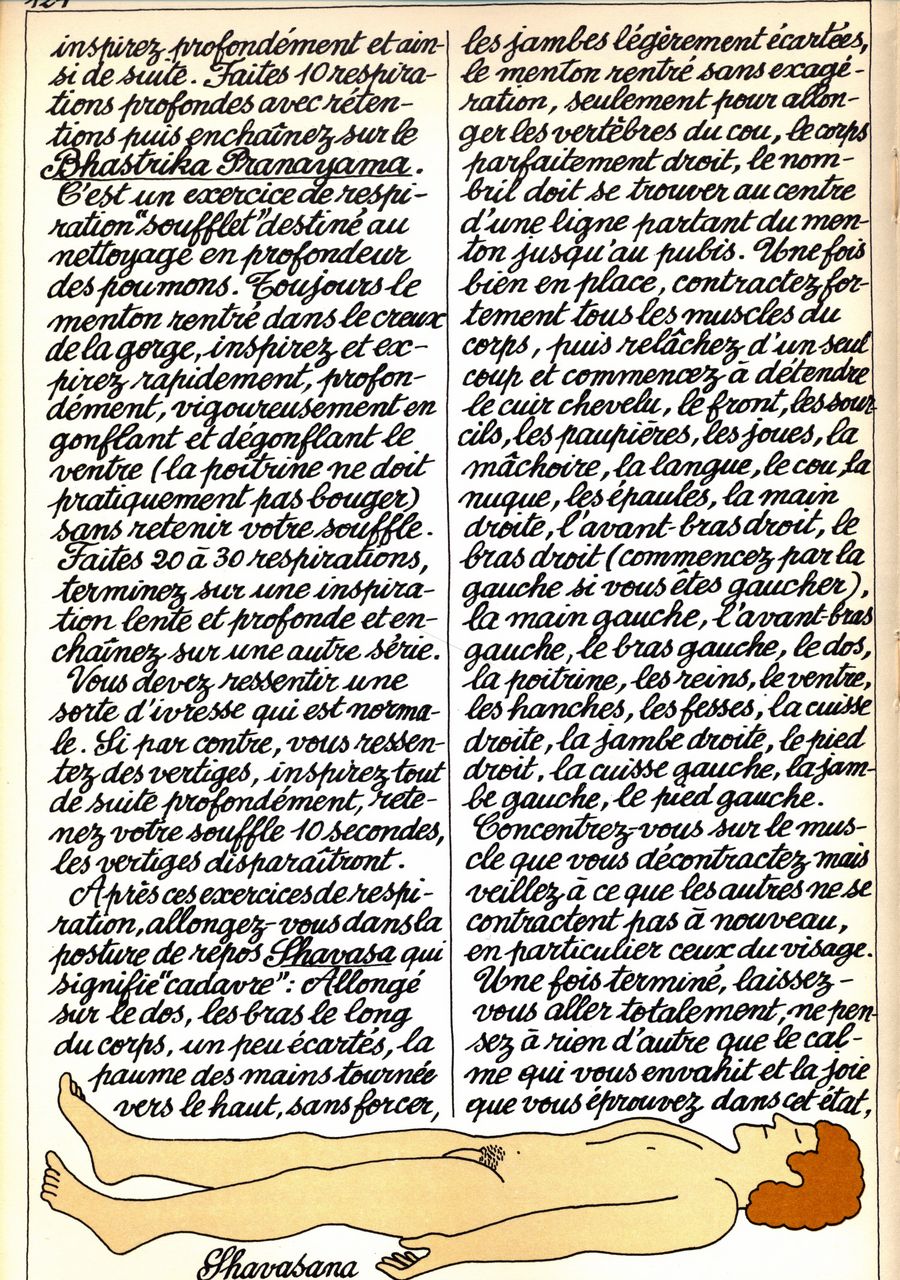 inspirez profondément et ain-
si de suite. Faites 10 respira-
tions profondes avec réten-
tions puis enchaînez sur le
Bhastrika Pranayama.
C'est un exercice de respi-
ration "soufflet" destiné au
nettoyage en profondeur
des poumons. Toujours le
menton rentré dans le creux
de la gorge, inspirez et ex-
pirez rapidement, profon-
dément, vigoureusement en
gonflant et dégonflant le
ventre (la poitrine ne doit
pratiquement pas bouger)
sans retenir votre souffle.
Faites 20 à 30 respirations,
terminez sur une inspira-
tion lente et profonde et en-
chaînez sur une autre série.
Vous devez ressentir une
sorte d'ivresse qui est norma-
le. Si par contre, vous ressen-
tez des vertiges, inspirez tout
de suite profondément, rete-
nez votre souffle 10 secondes,
les vertiges disparaîtront.
Après ces exercices de respi-
ration, allongez-vous dans la
posture de repos Shavasa qui
signifie "cadavre": Allongé
sur le dos, les bras le long
du corps, un peu écartés, la
paume des mains tournée
vers le haut, sans forcer,
les jambes légèrement écartées,
le menton rentré sans exagé-
ration, seulement pour allon-
ger les vertèbres du cou, le corps
parfaitement droit, le nom-
bril doit se trouver au centre
d'une ligne partant du men-
ton jusqu'au pubis. Une fois
bien en place, contractez for-
tement tous les muscles du
corps, puis relâchez d'un seul
coup et commencez à détendre
le cuir chevelu, le front, les sour-
cils, les paupières, les joues, la
mâchoire, la langue, le cou, la
nuque, les épaules, la main
droite, l'avant-bras droit, le
bras droit (commencez par la
gauche si vous êtes gaucher),
la main gauche, l'avant-bras
gauche, le bras gauche, le dos,
la poitrine, les reins, le ventre,
les hanches, les fesses, la cuisse
droite, la jambe droite, le pied
droit, la cuisse gauche, la jam-
be gauche, le pied gauche.
Concentrez-vous sur le mus-
cle que vous décontractez mais
veillez à ce que les autres ne se
contractent pas à nouveau,
en particulier ceux du visage.
Une fois terminé, laissez-
vous aller totalement, ne pen-
sez à rien d'autre que le cal-
me qui vous envahit et la joie
que vous éprouvez dans cet état,
Shavasana